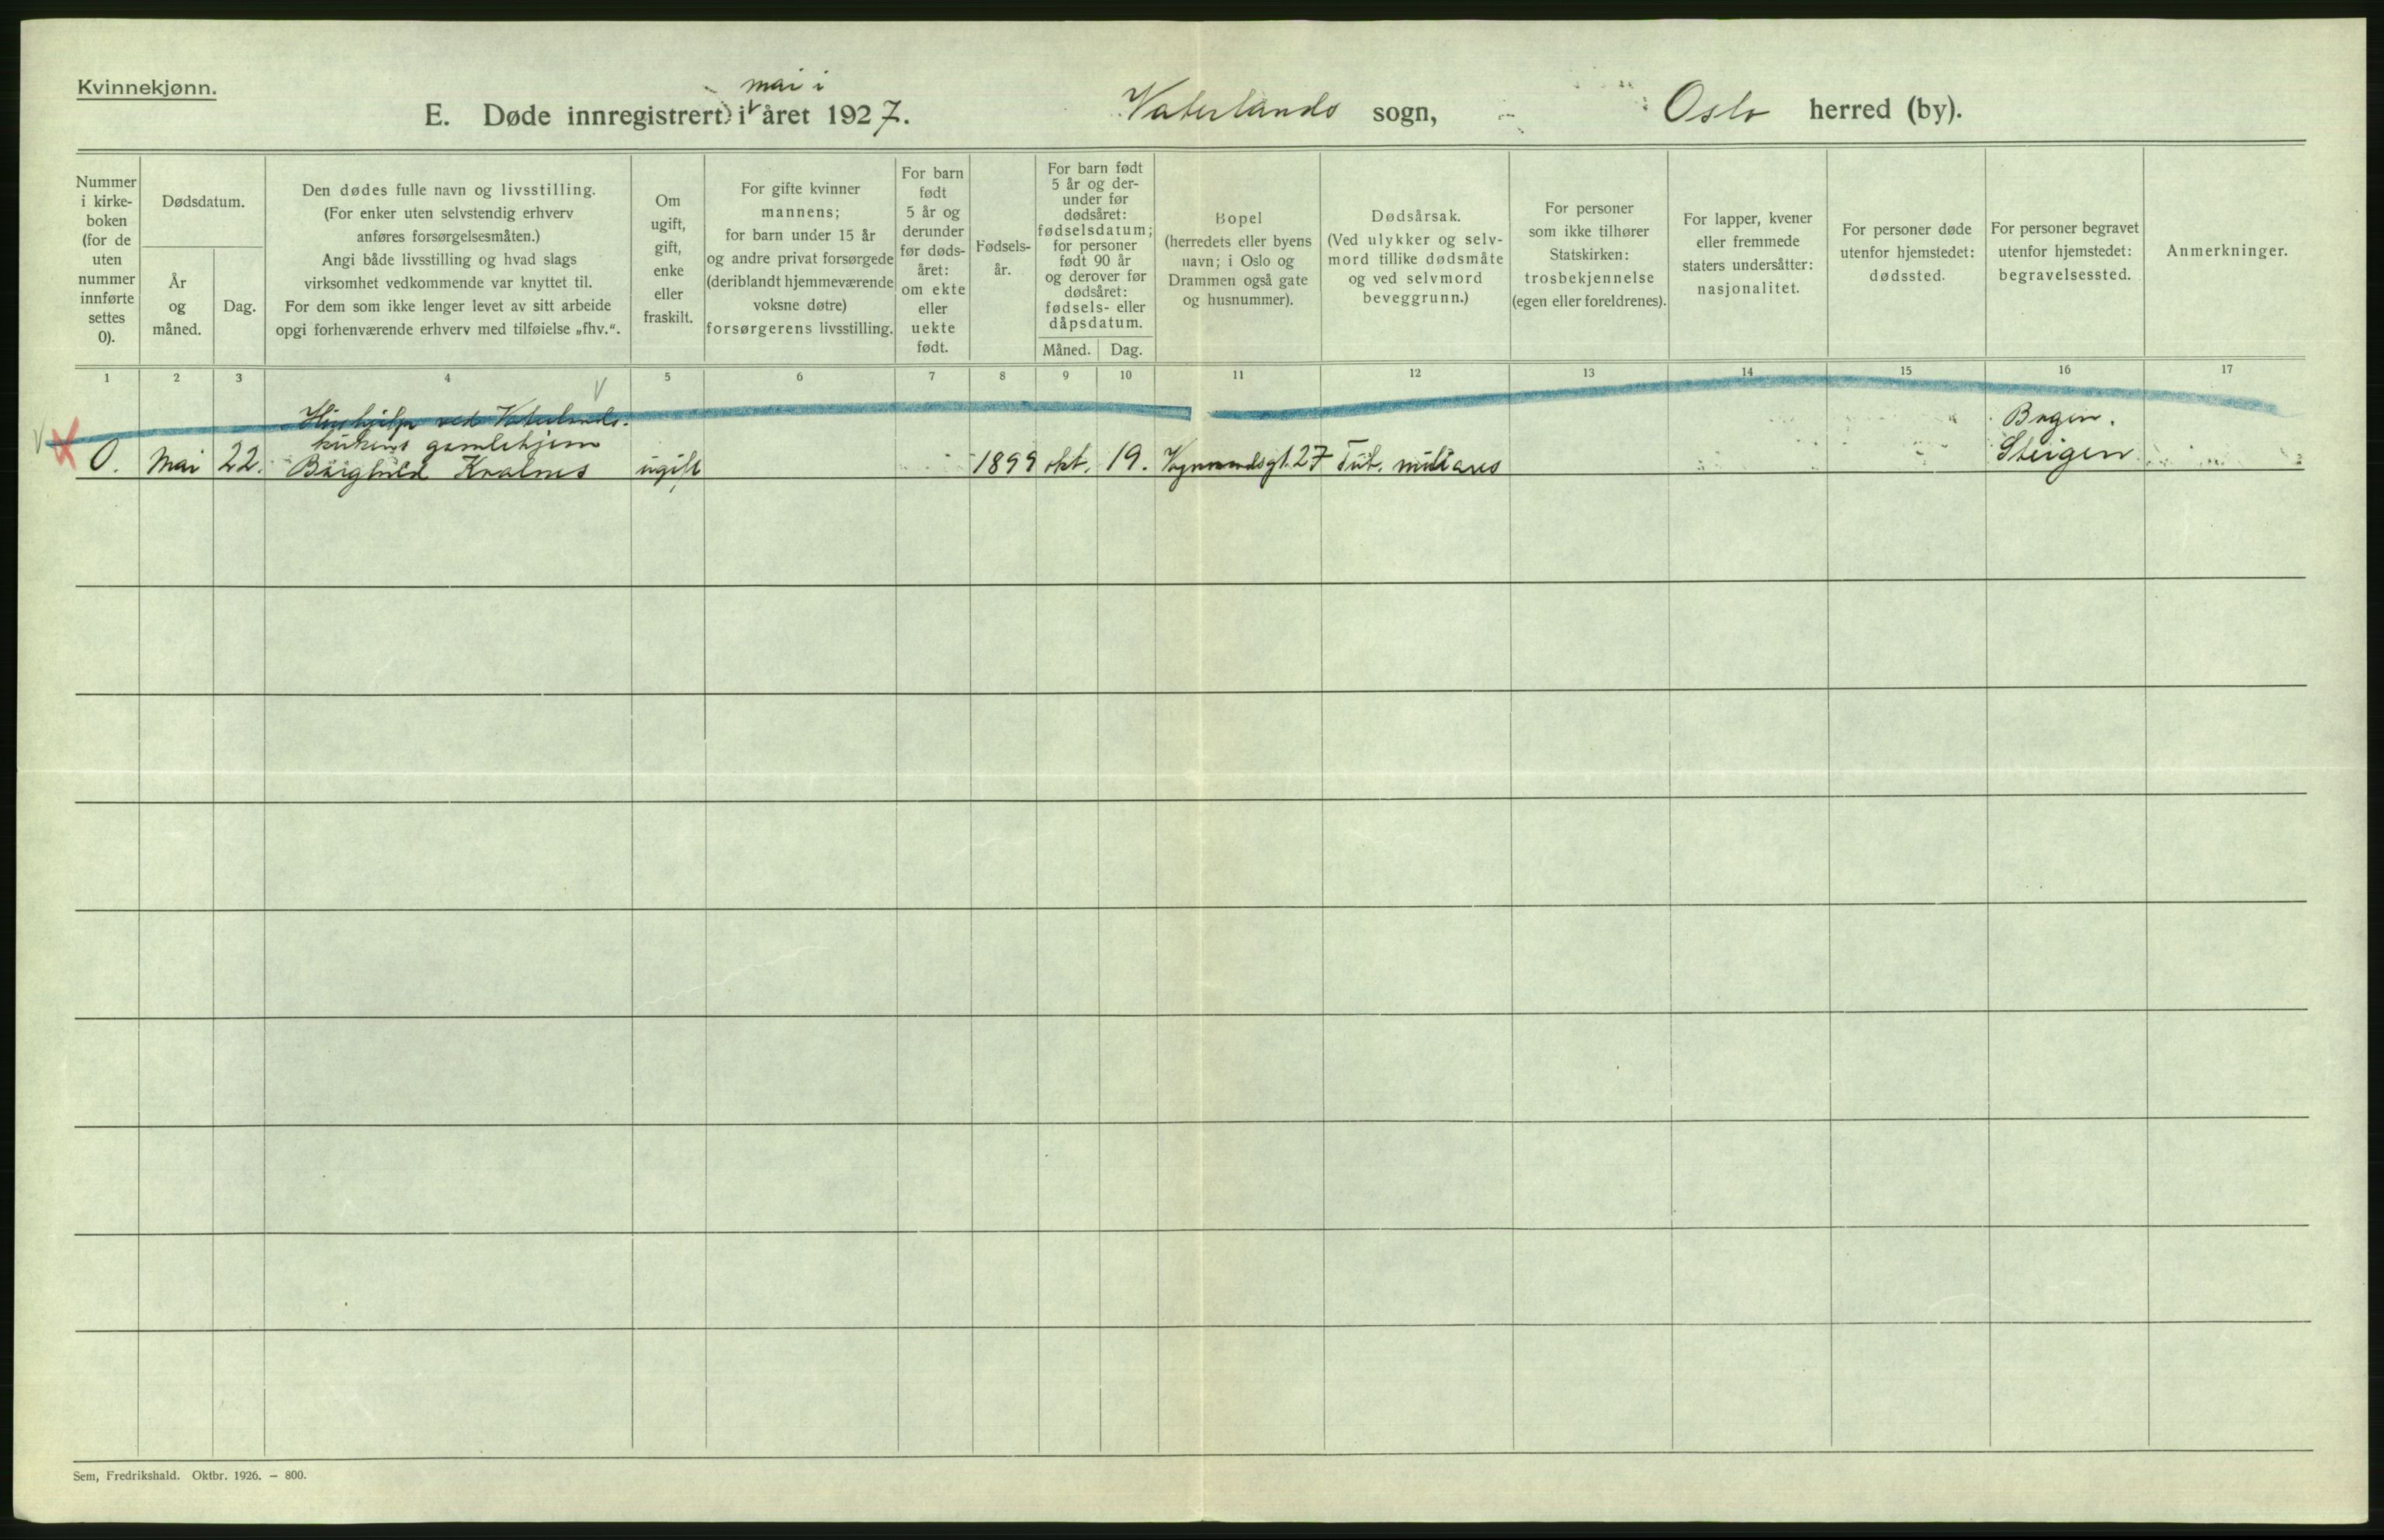 Kvinnekjønn.
mai i
E. Døde innregistrert i året 1927. Vaterlands sogn, Oslo herred (by).
Nummer
i kirke-
boken
(for de
uten
nummer
innførte
settes
0).
Dødsdatum.
År
og
måned.
Dag.
Den dødes fulle navn og livsstilling.
(For enker uten selvstendig erhverv
anføres forsørgelsesmåten.)
Angi både livsstilling og hvad slags
virksomhet vedkommende var knyttet til.
For dem som ikke lenger levet av sitt arbeide
opgi forhenværende erhverv med tilføielse „fhv.“.
Om
ugift,
gift,
enke
eller
fraskilt.
For gifte kvinner
mannens;
for barn under 15 år
og andre privat forsørgede
(deriblandt hjemmeværende
voksne døtre)
forsørgerens livsstilling.
For barn
født
5 år og
derunder
før døds-
året:
om ekte
eller
uekte
født.
Fødsels-
år.
For barn født
5 år og der-
under før
dødsåret:
fødselsdatum;
for personer
født 90 år
og derover før
dødsåret:
fødsels- eller
dåpsdatum.
Måned. Dag.
Bopel
(herredets eller byens
navn; i Oslo og
Drammen også gate
og husnummer).
Dødsårsak.
(Ved ulykker og selv-
mord tillike dødsmåte
og ved selvmord
beveggrunn.)
For personer
som ikke tilhører
Statskirken:
trosbekjennelse
(egen eller foreldrenes).
For lapper, kvener
eller fremmede
staters undersåtter:
nasjonalitet.
For personer døde
utenfor hjemstedet:
dødssted.
For personer begravet
utenfor hjemstedet:
begravelsessted.
Anmerkninger.
1 2 3 4 5 6 7 8 9 10 11 12 13 14 15 16 17
Hushjelp ved Vaterlands- Bogen.
kirkens gamlehjem
0. Mai 22. Borghild Kralnes ugift 1899 okt. 19. 27 Tub. miliares Steigen
Sem, Fredrikshald. Oktbr. 1926. — 800.